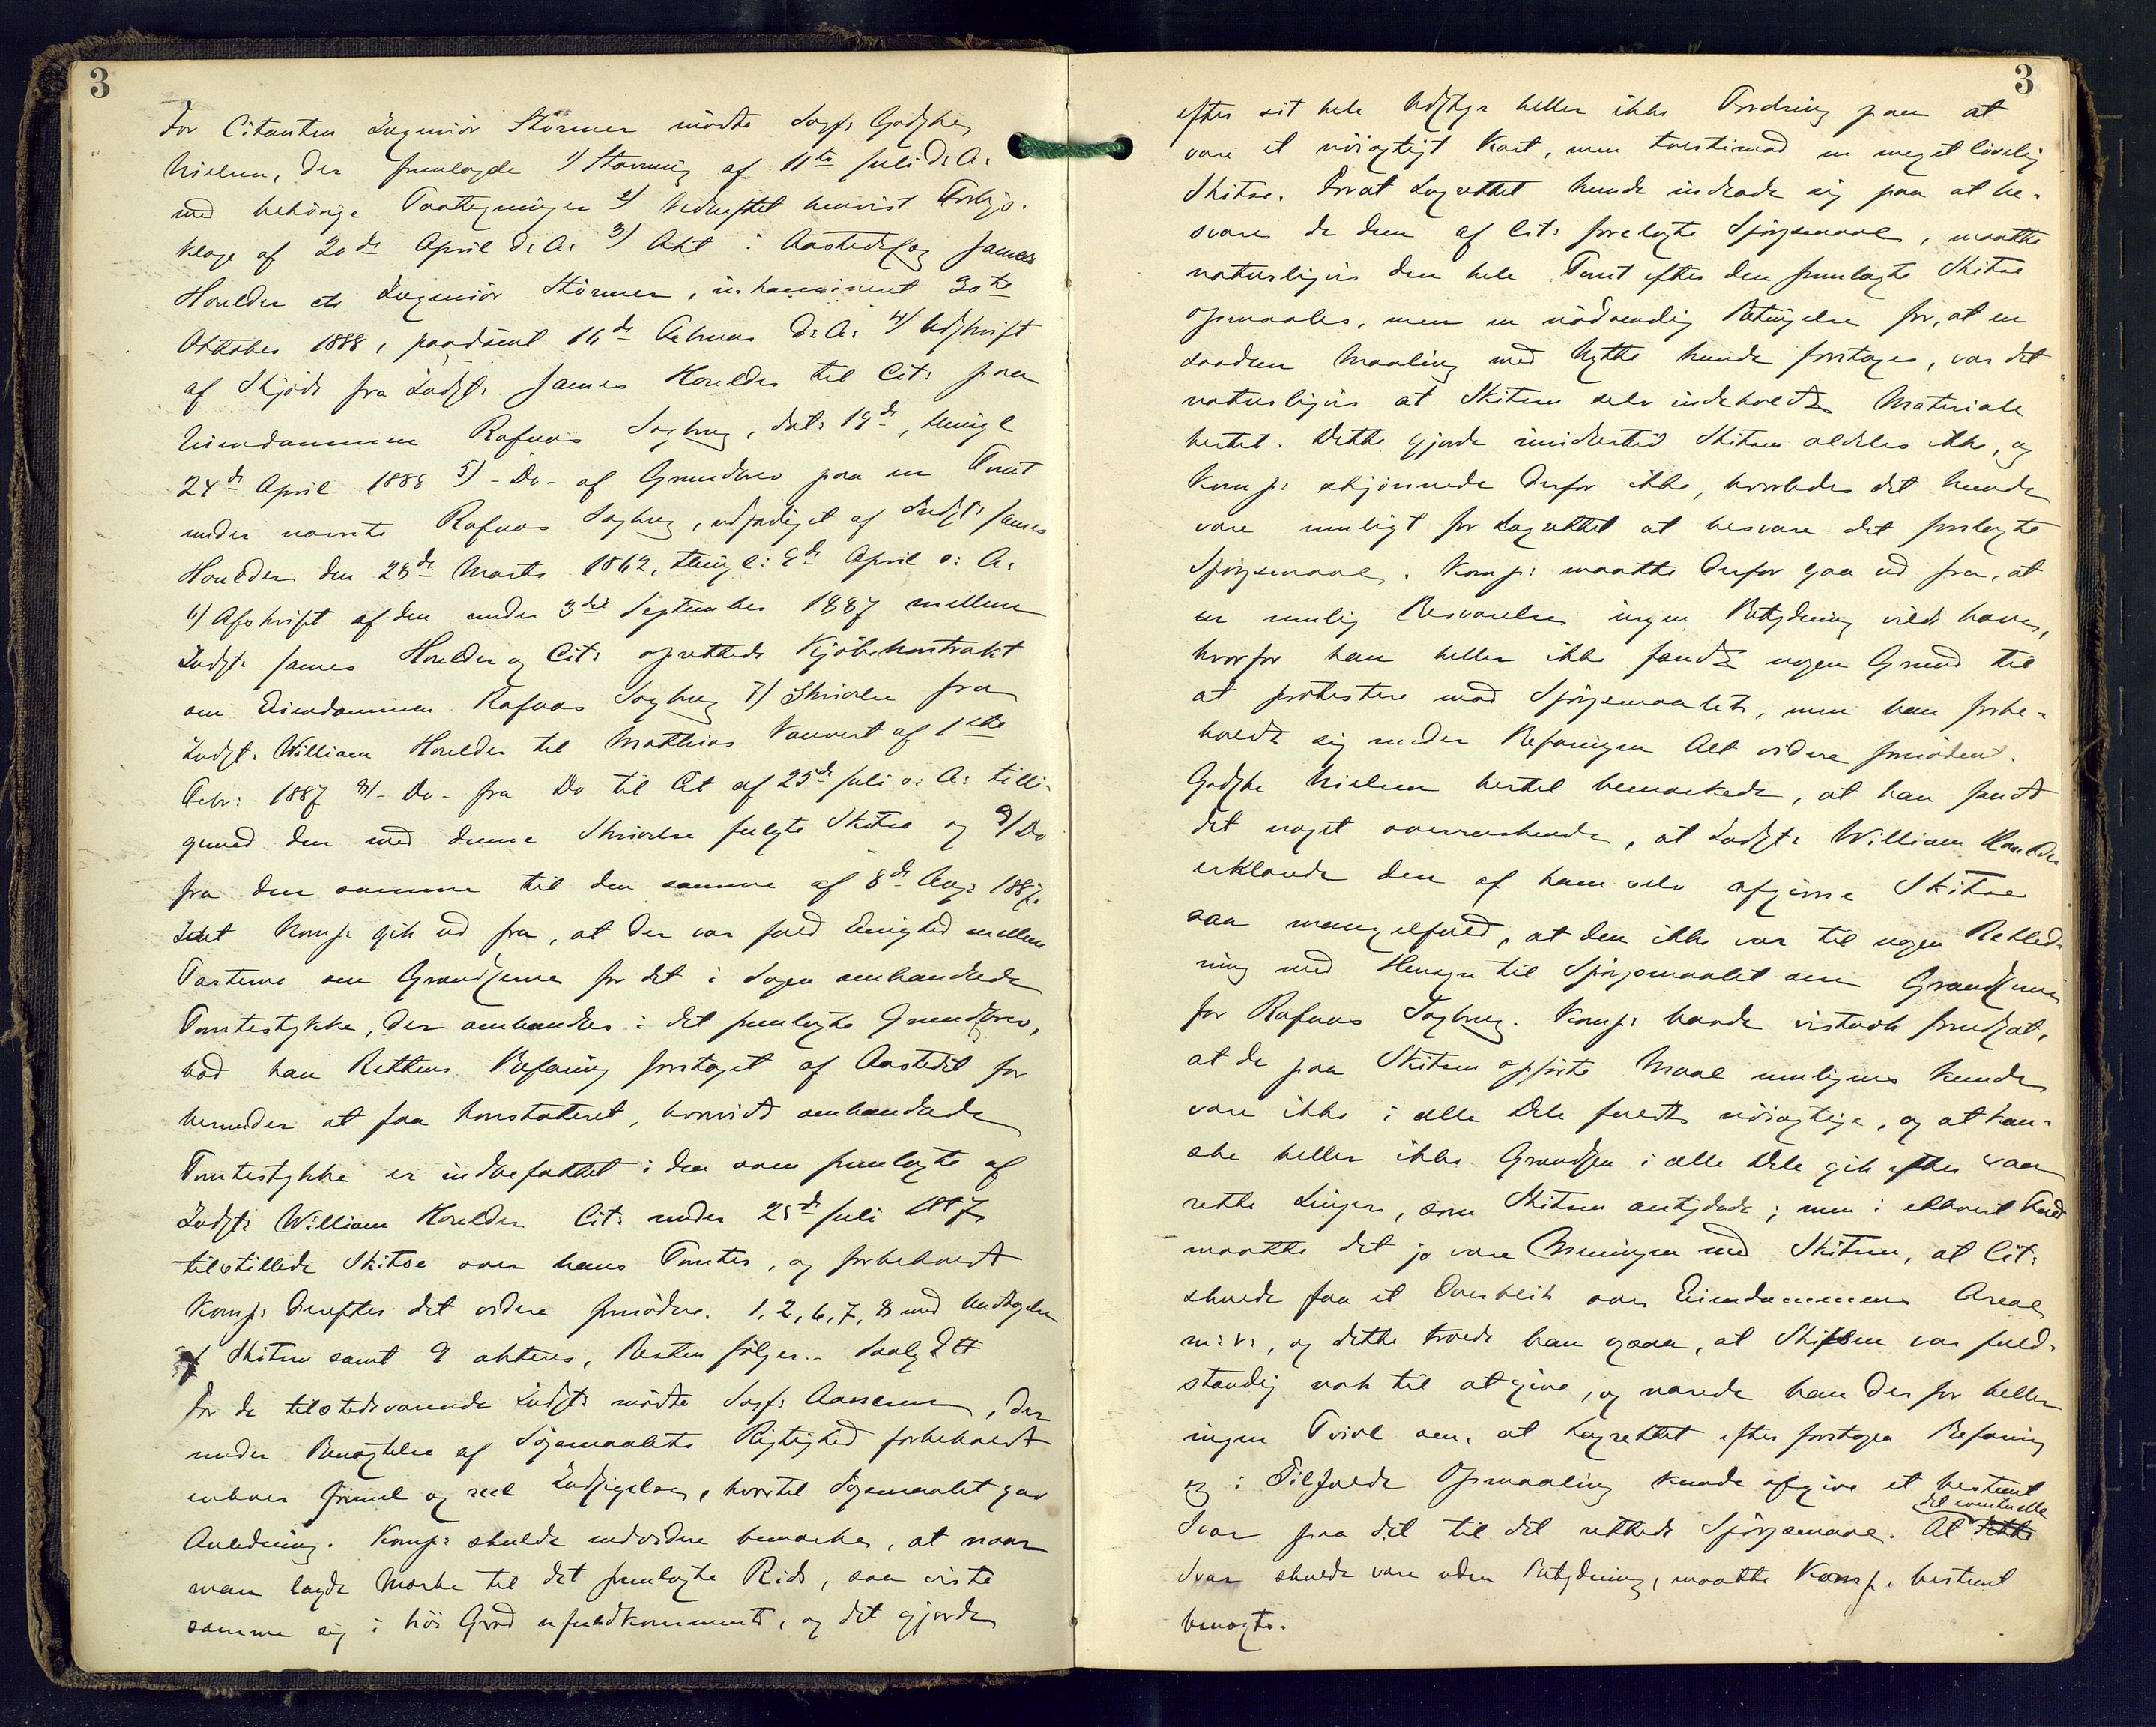 3
For Citanten Ingeniør Størmer mødte Sagf: Godske
Nielsen, der fremlagde 1) Stævning af 11te Juli d: A:
med behørige Paategninger 2) bekræftet henvist Forligs-
klage af 20de April d: A: 3) Akt i Aastedssag James
Houlder ctr Ingeniør Størmer, inkamineret 30te
Oktober 1888, paadømt 16de Februar d: A: 4) Udskrift
af Skjøde fra Indst: James Houlder til Cit: paa
Eiendommen Rafnæs Sagbrug, dat: 19de, thingl
24de April 1888 5) - Do - af Grundbrev paa en Tomt
under nævnte Rafnæs Sagbrug, udfærdiget af Indst: James
Houlder den 28de Marts 1862, thingl: 9de April s: A:
6) Afskrift af den under 3die September 1887 mellem
Indst: James Houlder og Cit: oprettede Kjøbekontrakt
om Eiendommen Rafnæs Sagbrug 7) Skrivelse fra
Indst: William Houlder til Mathias Vauvert af 1ste
Febr: 1887 8) - Do - fra Do til Cit af 25de Juli s: A: tilli-
gemed den med denne Skrivelse fulgte Skitse og 9) Do
fra den samme til den samme af 8de Aug: 1887.
Idet Komp: gik ud fra, at der var fuld Enighed mellem
Parterne om Grændserne for det i Sagen omhandlede
Tomtestykke, der omhandles i det fremlagte Grundbrev,
bad han Rettens Befaring foretaget af Aastedet for
herunder at faa konstateret, hvorvidt omhandlede
Tomtestykke er indbefattet i den som fremlagte af
Indst: William Houlder Cit: under 25de Juli 1887
tilstillede Skitse over hans Tomter, og forbeholdt
Komp: derefter det videre fornødne. 1, 2, 6, 7, 8 med Undtagelse
af Skitsen samt 9 akteres, Resten følger.
For de tilstedeværende Indst: mødte Sagf: Aanesen, der
under Benægtelse af Søgsmaalets Rigtighed forbeholdt
enhver formel og reel Indsigelse, hvortil Søgsmaalet gav
Anledning. Komp: skulde endvidere bemærke, at naar
man lagde Mærke til det fremlagte Rids, saa viste
samme sig i høi Grad ufuldkomment, og det gjorde
3
efter sit hele Udstyr heller ikke Fordring paa at
være et nøiagtigt Kart, men tvertimod en meget løselig
Skitse. Forat Lagrettet kunde indlade sig paa at be-
svare de dem af Cit: forelagte Spørgsmaal, maatte
naturligvis den hele Tomt efter den fremlagte Skitse
opmaales, men en nødvendig Betingelse for, at en
saadan Maaling med Nytte kunde foretages, var det
naturligvis at Skitsen selv indeholdt Materiale
hertil. Dette gjorde imidlertid Skitsen aldeles ikke, og
Komp: skjønnede derfor ikke, hvorledes det kunde
være muligt for Lagrettet at besvare det forelagte
Spørgsmaal. Komp: maatte derfor gaa ud fra, at
en mulig Besvarelse ingen Betydning vilde have,
hvorfor han heller ikke fandt nogen Grund til
at protestere mod Spørgsmaalet, men han forbe-
holdt sig under Befaringen Alt videre fornødent.
Godske Nielsen hertil bemærkede, at han fandt
det noget overraskende, at Indst: William Houlder
erklærede den af ham selv afgivne Skitse
saa mangelfuld, at den ikke var til nogen Veiled-
ning med Hensyn til Spørgsmaalet om Grændserne
for Rafnæs Sagbrug. Komp: havde vistnok forudsat,
at de paa Skitsen opførte Maal muligens kunde
være ikke i alle Dele fuldt nøiagtige, og at kan-
ske heller ikke Grændsen i alle Dele gik efter saa
rette Linjer, som Skitsen antydede; men i ethvert Fald
maatte det jo være Meningen med Skitsen, at Cit:
skulde faa et Overblik over Eiendommens Areal
m: v:, og dette troede han ogsaa, at Skitsen var fuld-
stændig nok til at give, og nærede han derfor heller
ingen Tvivl om, at Lagrettet efter foretagen Befaring
og i Tilfælde Opmaaling kunde afgive et bestemt
Svar paa det til det rettede Spørgsmaal. At det eventuelle
Svar skulde være uden Betydning, maatte Komp: bestemt
benægte.